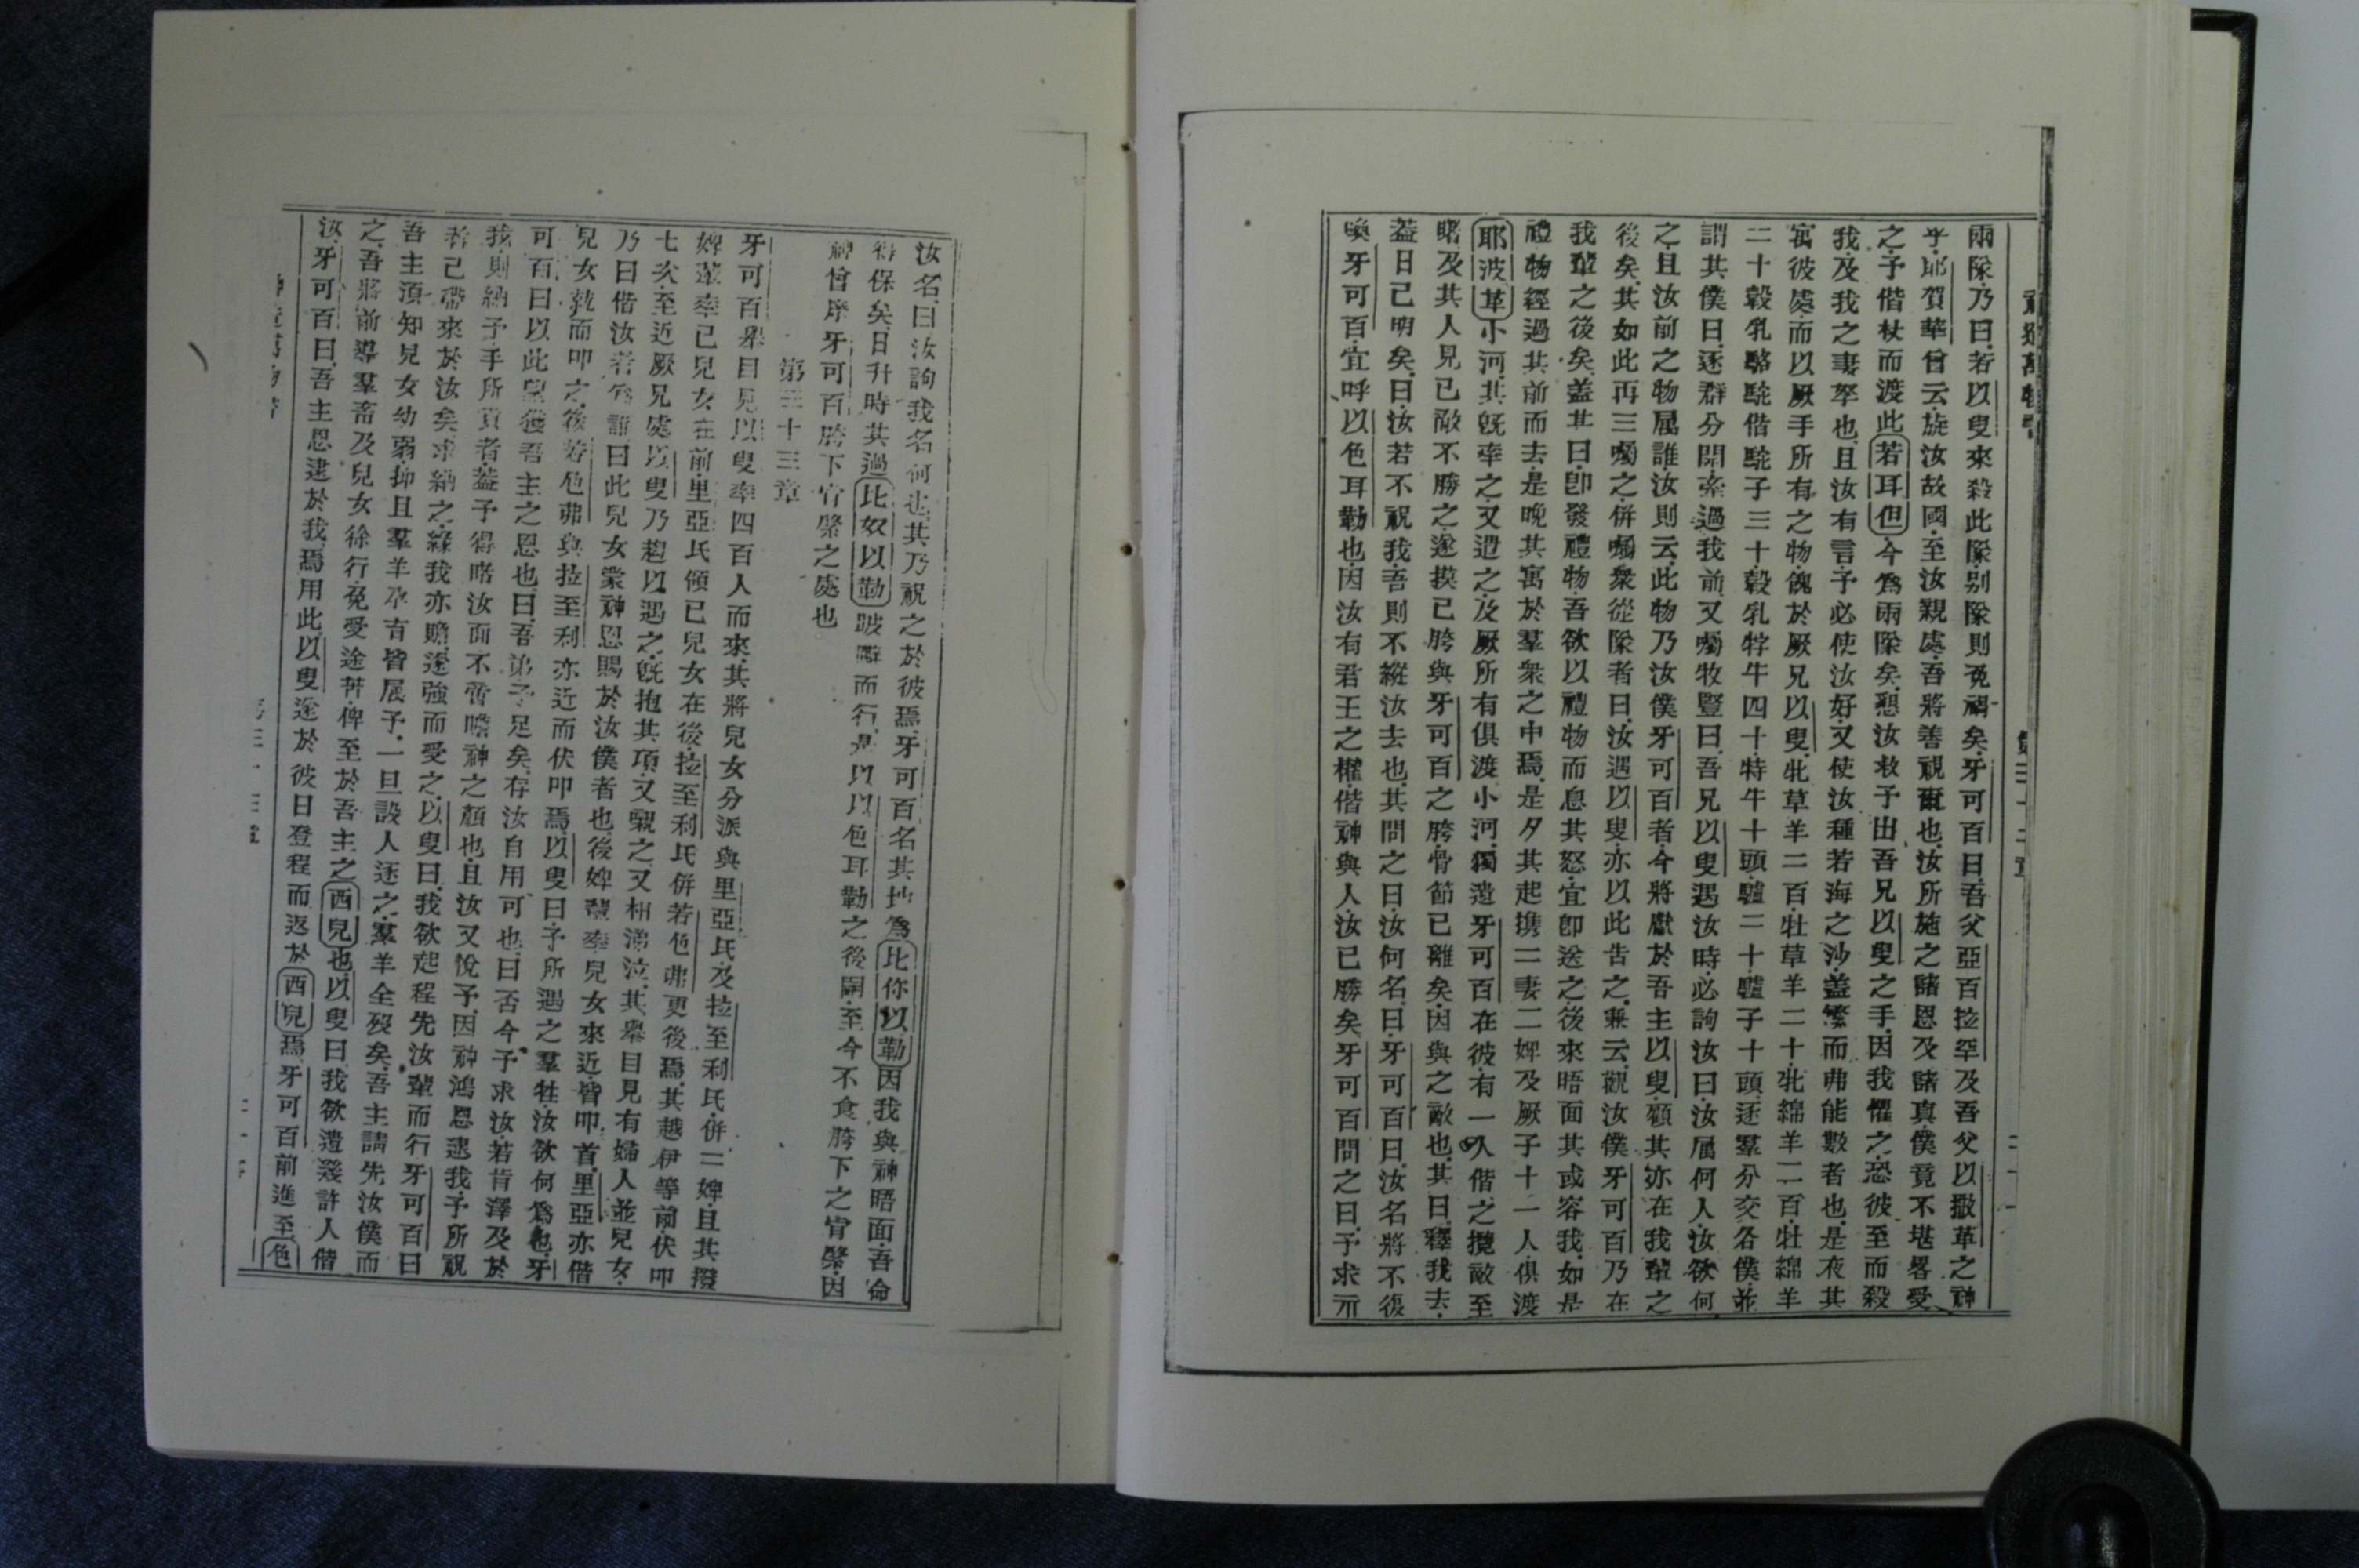 兩隊乃曰若以叟來殺此隊别隊則免禍矣牙可百曰吾父亞百拉罕及吾父以撒革之神
乎耶賀華曾云旋汝故國至汝親處吾將善視爾也汝所施之諸恩及諸真僕竟不堪畧受
之予偕杖而渡此若耳但今爲兩隊矣懇汝救予出吾兄以叟之手因我懼之恐彼至而殺
我及我之妻孥也且汝有言予必使汝好又使汝種若海之沙蓋繁而弗能數者也是夜其
寓彼處而以厥手所有之物餽於厥兄以叟牝草羊二百牡草羊二十牝綿羊二百牡綿羊
二十㲉乳駱駝偕駝子三十㲉乳牸牛四十特牛十頭驢二十驢子十頭逐羣分交各僕並
謂其僕曰逐群分開牽過我前又囑牧豎曰吾兄以叟遇汝時必詢汝曰汝属何人汝欲何
之且汝前之物属誰汝則云此物乃汝僕牙可百者今將獻於吾主以叟顧其亦在我輩之
後矣其如此再三囑之併囑衆從隊者曰汝遇以叟亦以此告之兼云觀汝僕牙可百乃在
我輩之後矣蓋其曰卽發禮物吾欲以禮物而息其怒宜卽送之後來晤面其或容我如是
禮物經過其前而去是晚其寓於羣衆之中焉是夕其起擕二妻二婢及厥子十一人俱渡
耶波革小河其旣牽之又遣之及厥所有俱渡小河獨遺牙可百在彼有一人偕之攬敵至
曙及其人見己敵不勝之遂摸己胯與牙可百之胯骨節已離矣因與之敵也其曰釋我去
蓋日已明矣曰汝若不祝我吾則不縱汝去也其問之曰汝何名曰牙可百曰汝名將不復
喚牙可百宜呼以色耳勒也因汝有君王之權偕神與人汝已勝矣牙可百問之曰予求示
汝名曰汝詢我名何也其乃祝之於彼焉牙可百名其地爲比你以勒因我與神晤面吾命
得保矣日升時其過比奴以勒跛躃而行是以以色耳勒之後嗣至今不食胯下之膋綮因
神曾摩牙可百胯下膋綮之處也
第三十三章
牙可百舉目見以叟率四百人而來其將兒女分派與里亞氏及拉至利氏併二婢且其撥
婢輩率己兒女在前里亞氏領己兒女在後拉至利氏併若色弗更後焉其越伊等前伏叩
七次至近厥兄處以叟乃趨以遇之旣抱其項又親之又相涕泣其舉目見有婦人並兒女
乃曰偕汝者爲誰曰此兒女蒙神恩賜於汝僕者也後婢輩率兒女來近皆叩首里亞亦偕
兒女就而叩之後若色弗與拉至利亦近而伏叩焉以叟曰予所遇之羣牲汝欲何爲也牙
可百曰以此望獲吾主之恩也曰吾弟予足矣存汝自用可也曰否今予求汝若肯澤及於
我則納予手所貢者蓋予得晤汝面不啻瞻神之顏也且汝又悅予因神鴻恩逮我予所祝
者已帶來於汝矣求納之緣我亦贍遂強而受之以叟曰我欲起程先汝輩而行牙可百曰
吾主須知兒女幼弱抑且羣羊孕有皆属予一旦設人逐之羣羊全殁矣吾主請先汝僕而
之吾將前導羣畜及兒女徐行免受途苦俾至於吾主之西兒也以叟曰我欲遺幾許人偕
汝牙可百曰吾主恩逮於我焉用此以叟遂於彼日登程而返於西兒焉牙可百前進至色